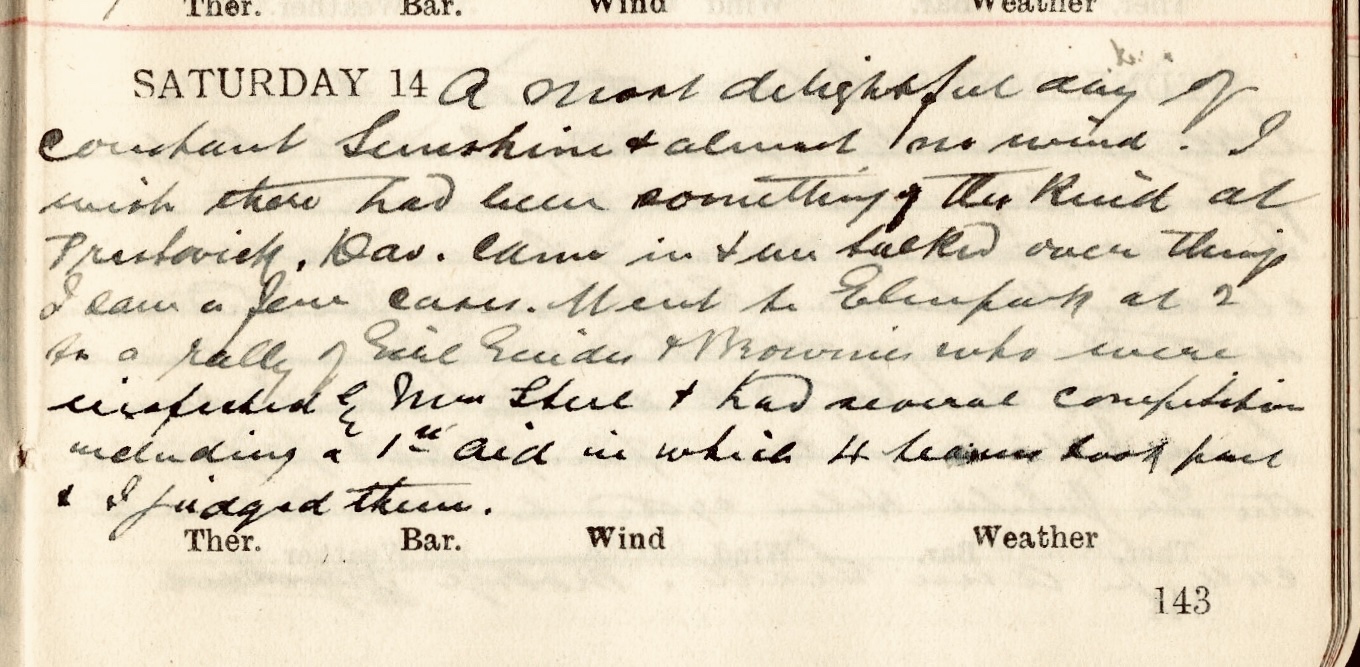 Ther. Bar. Wind Weather
SATURDAY 14 A most delightful day of
constant Sunshine & almost no wind. I
wish there had been something of this kind at
Prestwick. Dav. came in & we talked over things
I saw a few cases. Went to Elmpark at 2
to a rally of Girl Guides & Brownies who were
inspected by Mrs Steel & had several competition
including a 1st aid in which 4 teams took part
& I judged them.
Ther. Bar. Wind Weather
143